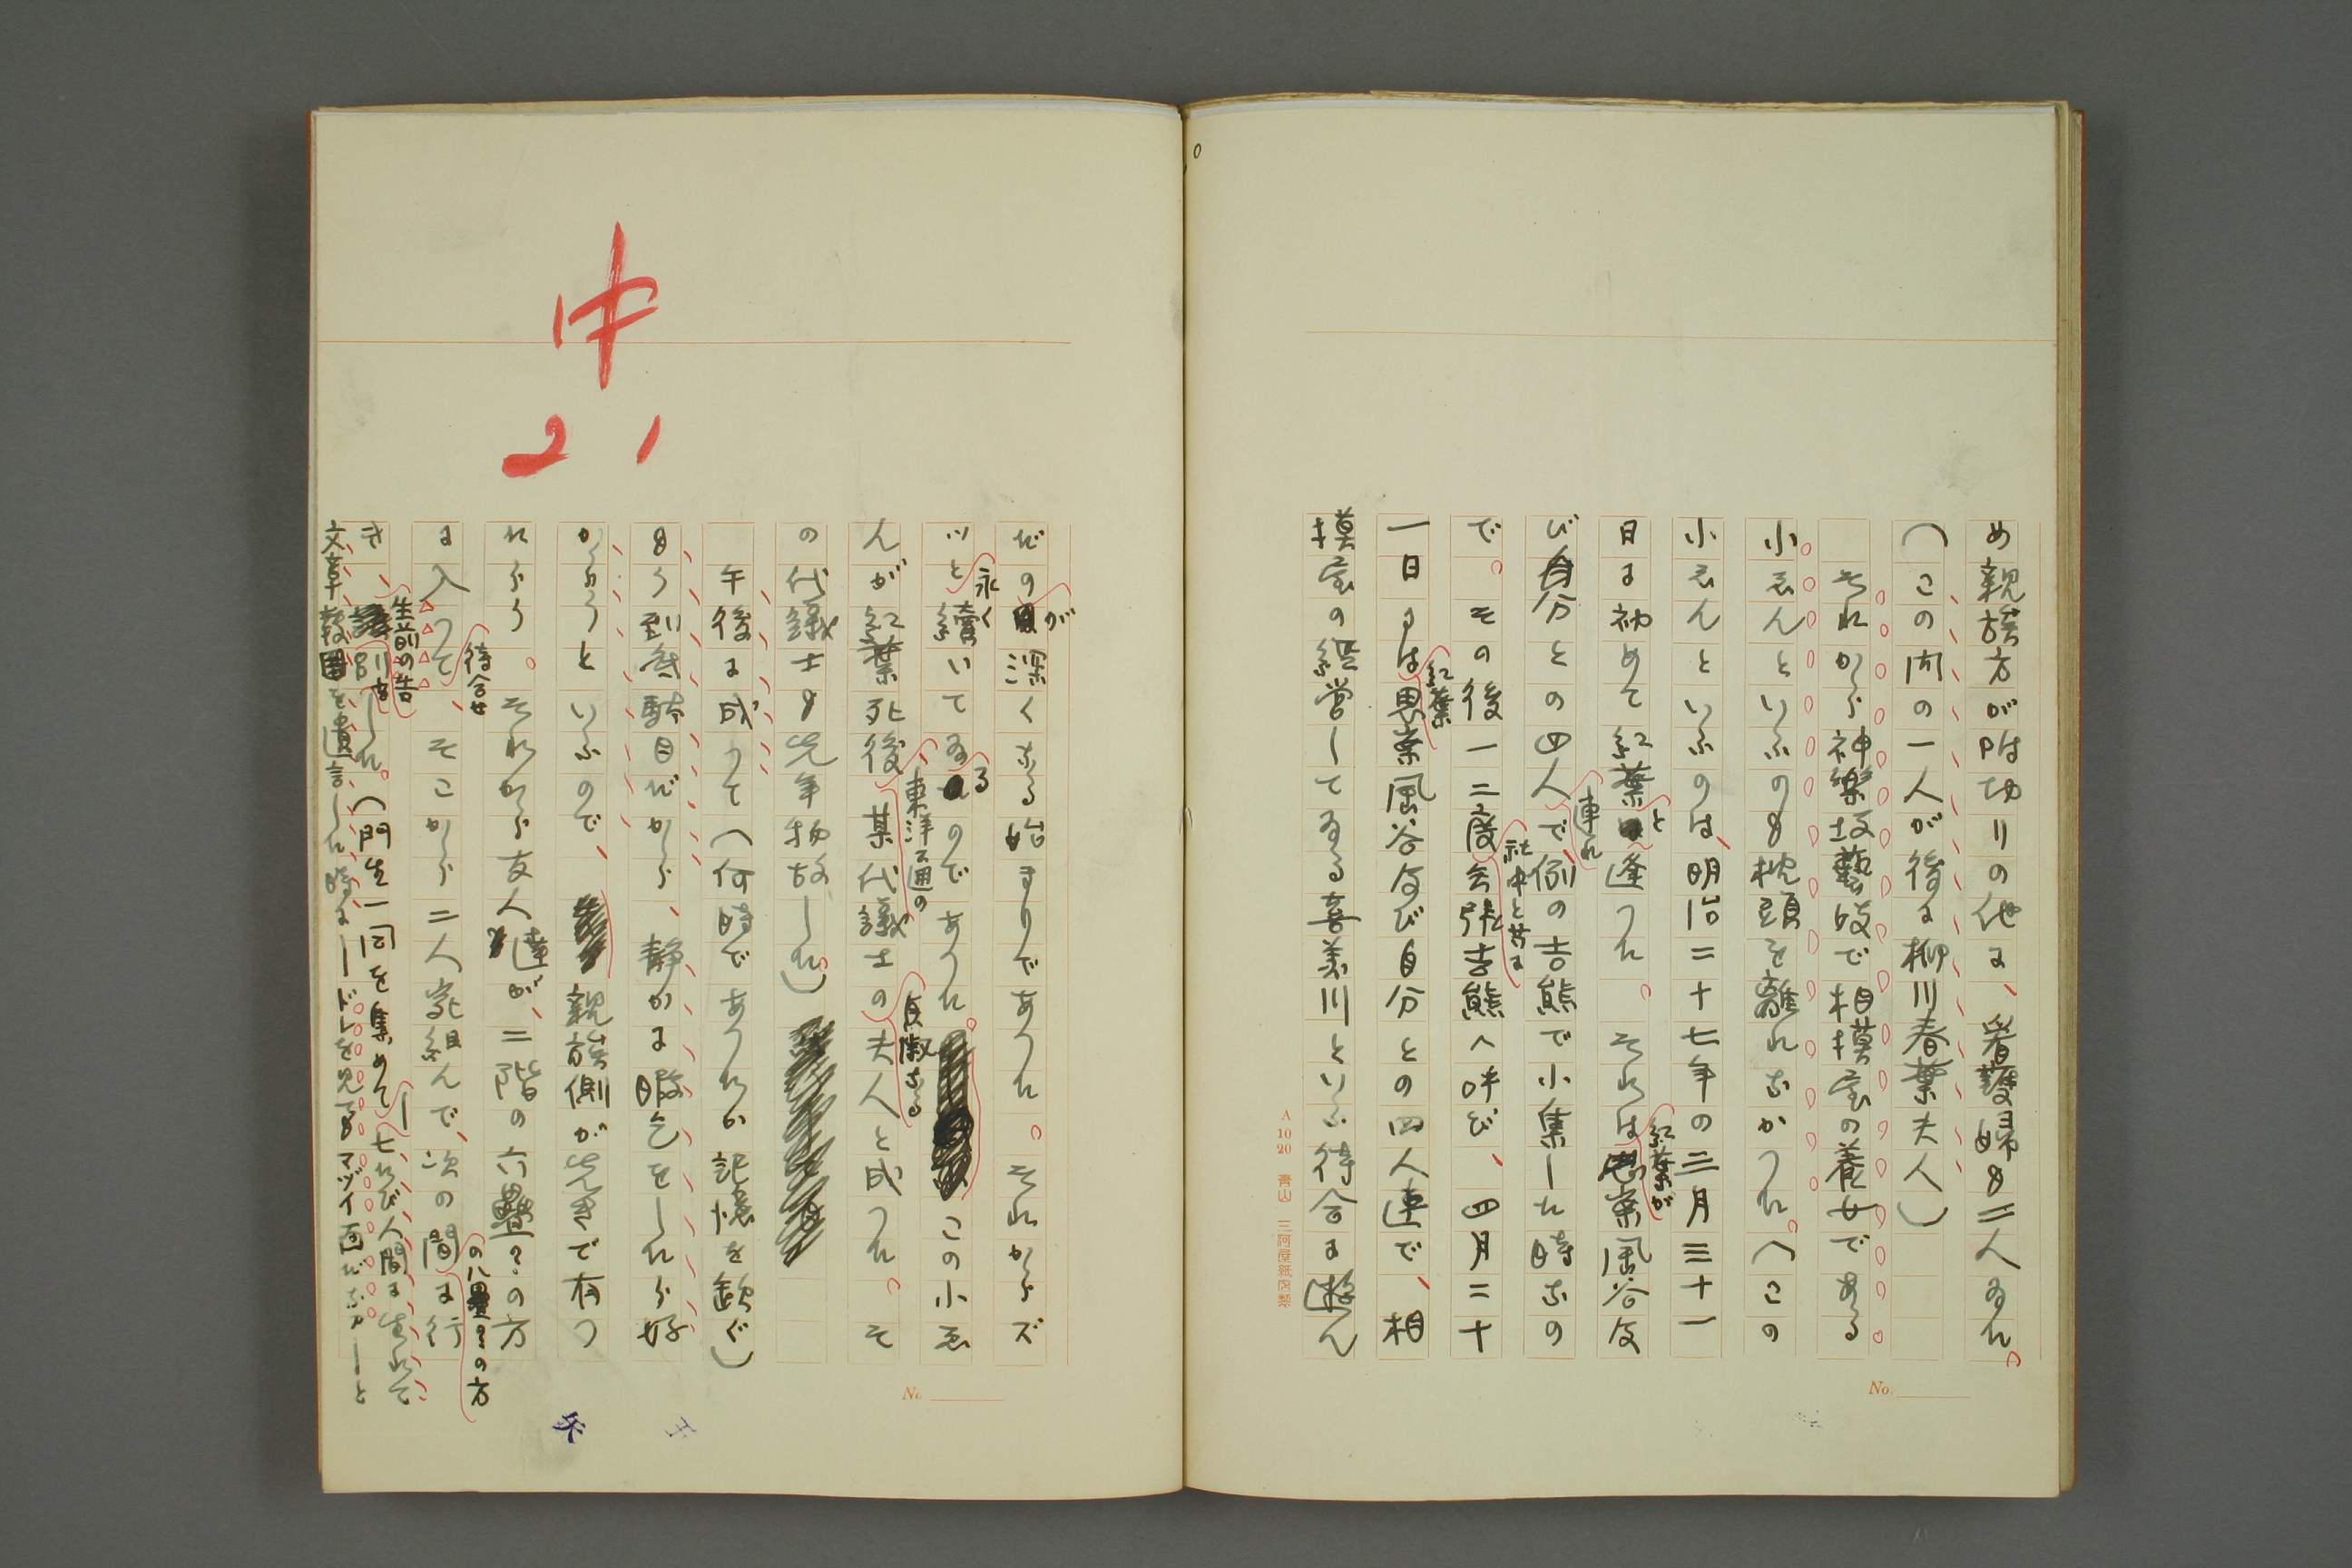 め親族方が四はかりの他に、看護婦も二人ゐた。
（この内の一人が後に柳川春葉夫人）
それから神樂坂藝妓で相摸家の養女である
小ゑんといふのも枕頭を離れなかつた。（この
小ゑんといふのは、明治二十七年の三月三十一
日に初めて紅葉と逢つた。それは紅葉が思案風谷及
び自分との四人連れで、例の吉熊で小集した時なの
で。その後一二度社中と共に会張吉熊へ呼び、四月二十
一日には紅葉思案風谷及び自分との四人連で、相
摸家の經営してゐる喜美川といふ待合に遊ん
だのが深くなる始まりであつた。それからズ
ツと永く續いてゐるのであつた。この小ゑ
んが紅葉死後、東洋通の某代議士の貞淑なる夫人と成つた。そ
の代議士も先年物故した）
午後に成つて（何時であつたか記憶を缺ぐ）
もう到底駄目だから、静かに暇乞をしたら好
からうといふので、親族側が先きで有つ
たらう。それから友人達が、二階の六疊？の方
に入つて待合せ、そこから二人宛組んで、次の間の八疊？の方に行
き生前の告別をした。（門生一同を集めて—七たび人間に生れて
文章報國を遺言した時に—ドレを見てもマヅイ面だなア—と
中
21
A 10 20 青山 三河屋紙店製
No.
No.